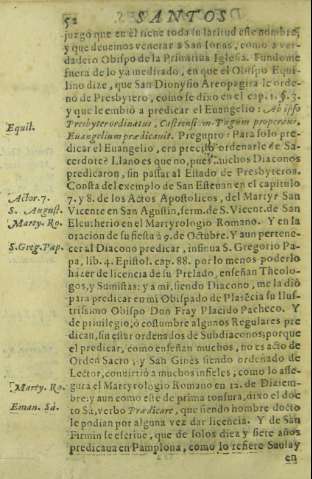 52 SANTOS
juzgo que en èl tiene toda su latitud este nombre,
y que deuemos venerar a San Ionas, como a ver-
dadero Obispo de la Primitiua Iglesia. Fundome
fuera de lo ya meditado, en que el Obispo Equi-
lino dize, que San Dionysio Areopagita le orde-
nò de Presbytero, como se dixo en el cap. 1. §. 7.
y que le embiò a predicar el Euangelio: Ab ipso
Presbyter ordinatus, Castrensem Pagum properans,
Equil. Euangelium prædicauit. Pregunto: Para solo pre-
dicar el Euangelio, era preciso ordenarle de Sa-
cerdote? Llano es que no, pues muchos Diaconos
predicaron, sin passar al Estado de Presbyteros.
Consta del exemplo de San Esteuan en el capitulo
Actor. 7. 7. y 8. de los Actos Apostolicos, del Martyr San
S. August. Vicente en San Agustin, serm. de S. Vicent. de San
Marty. Ro. Eleutherio en el Martyrologio Romano. Y en la
oracion de su fiesta à 9. de Octubre. Y aun pertene-
S. Greg. Pap. cer al Diacono predicar, insinua S. Gregorio Pa-
pa, lib. 4. Epistol. cap. 88. por lo menos poderlo
hazer de licencia de su Prelado, enseñan Theolo-
gos, y Sumistas: y a mi, siendo Diacono, me la diò
para predicar en mi Obispado de Plasēcia su Ilus-
trisimo Obispo Don Fray Placido Pacheco. Y
de priuilegio, ò costumbre algunos Regulares pre
dican, sin estar ordenados de Subdiaconos; porque
el predicar, como enseñan muchos, no es acto de
Orden Sacro; y San Ginès siendo ordenado de
Lector, conuirtiò a muchos infieles, como lo asse-
Marty. Ro. gura el Martyrologio Romano en 12. de Diziem-
bre: y aun como este de prima tonsura, dixo el doc
Eman. Sá. to Sà, verbo Prædicare, que siendo hombre docto
le podian por alguna vez dar licencia. Y de San
Firmin se escriue, que de solos diez y siete años
predicaua en Pamplona, como lo refiere Saulay
en